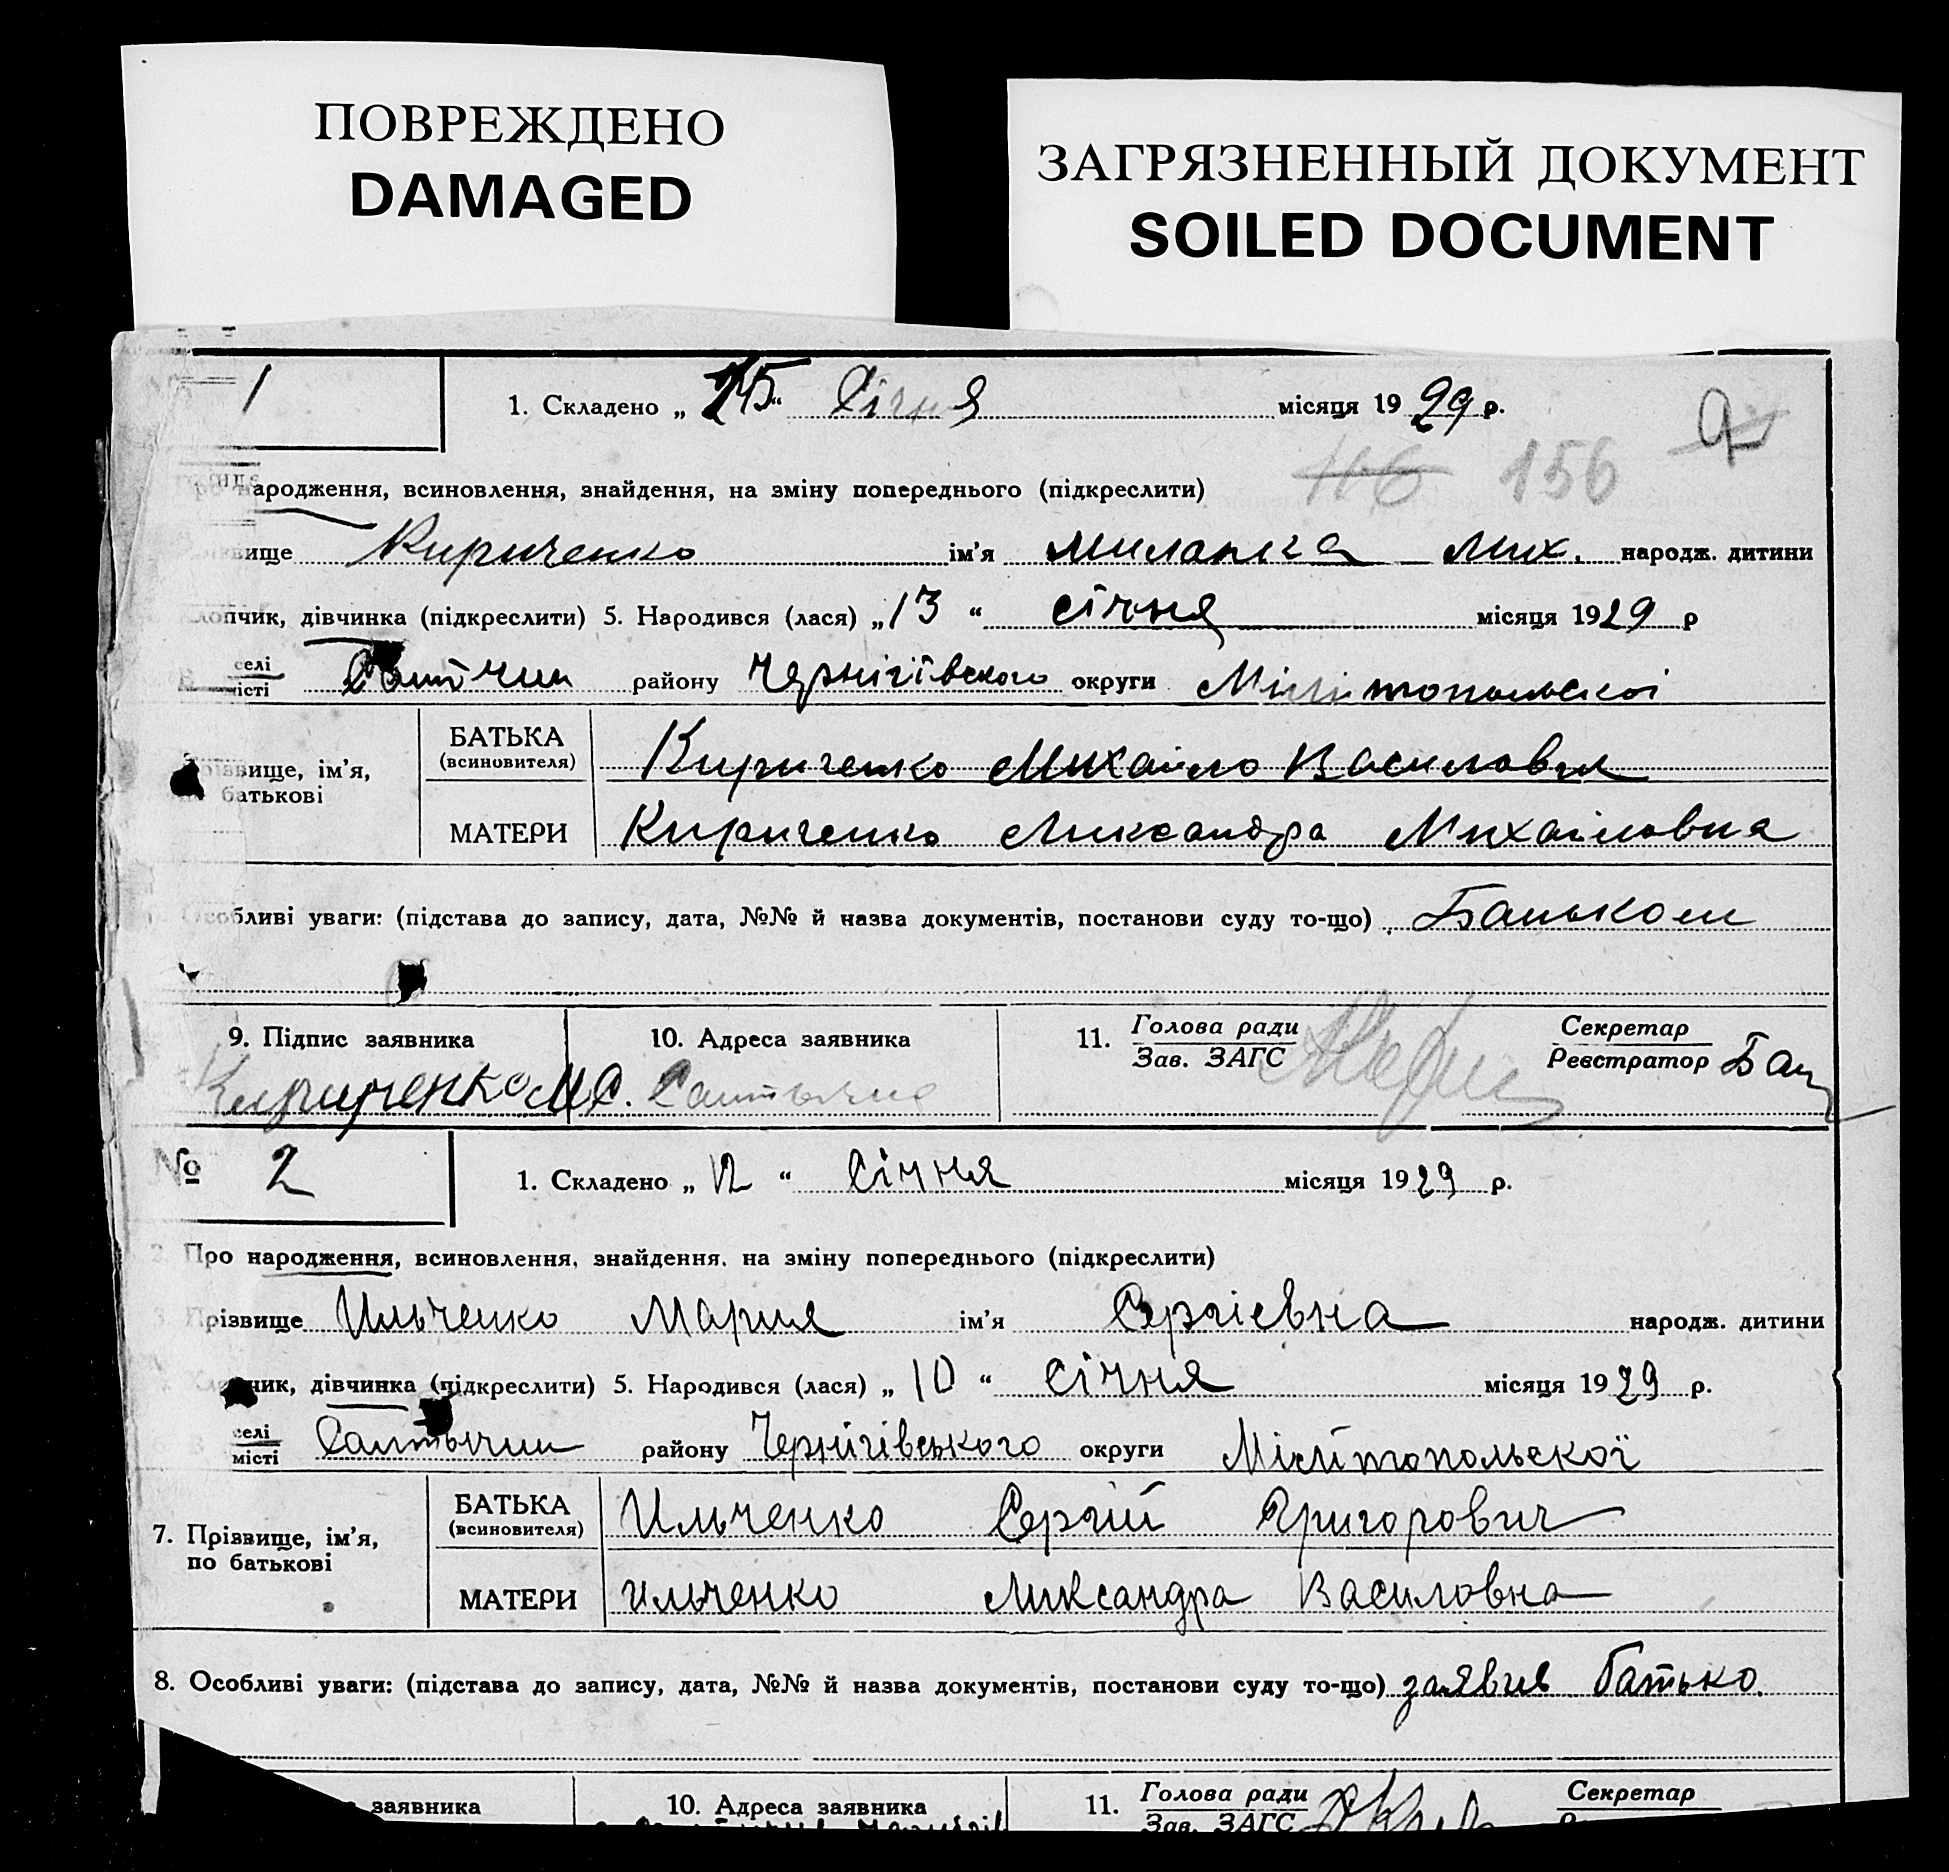 ПОВРЕЖДЕНО
DAMAGED
ЗАГРЯЗНЕННЫЙ ДОКУМЕНТ
SOILED DOCUMENT
1
1. Складено „ 15 “ Січня місяця 1929 р.
9
116 156
народження, всиновлення, знайдення, на зміну попереднього (підкреслити)
вище Кириченко ім’я Миланка Мих. народж. дитини
лопчик, дівчинка (підкреслити) 5. Народився (лася) „ 13 “ січня місяця 1929 р
селі
місті
Салтичии району Чернігівского округи Мілітопольскоі
Прізвище, ім’я,
батькові
БАТЬКА
(всиновителя)
Кириченко Михайло Василович
МАТЕРИ
Кириченко Ликсандра Михайловна
Особливі уваги: (підстава до запису, дата, №№ й назва документів, постанови суду то-що) Батьком
9. Підпис заявника
Кириченко М.
10. Адреса заявника
Салтычие
11. Голова ради
Зав. ЗАГС
Секретар
Реєстратор
№ 2
1. Складено „ 12 “ Січня місяця 1929 р.
2. Про народження, всиновлення, знайдення, на зміну попереднього (підкреслити)
Прізвище Ильченко Мария ім’я Сергіевна народж. дитини
чик, дівчинка (підкреслити) 5. Народився (лася) „ 10 “ січня місяця 1929 р.
селі
місті
Салтычии району Чернігівського округи Мілітопольскої
7. Прізвище, ім’я,
по батькові
БАТЬКА
(всиновителя)
Ильченко Сергій Григорович
МАТЕРИ
Ильченко Ликсандра Василовна
8. Особливі уваги: (підстава до запису, дата, №№ й назва документів, постанови суду то-що) заявив батько.
заявника
10. Адреса заявника
11. Голова ради
Зав. ЗАГС
Секретар